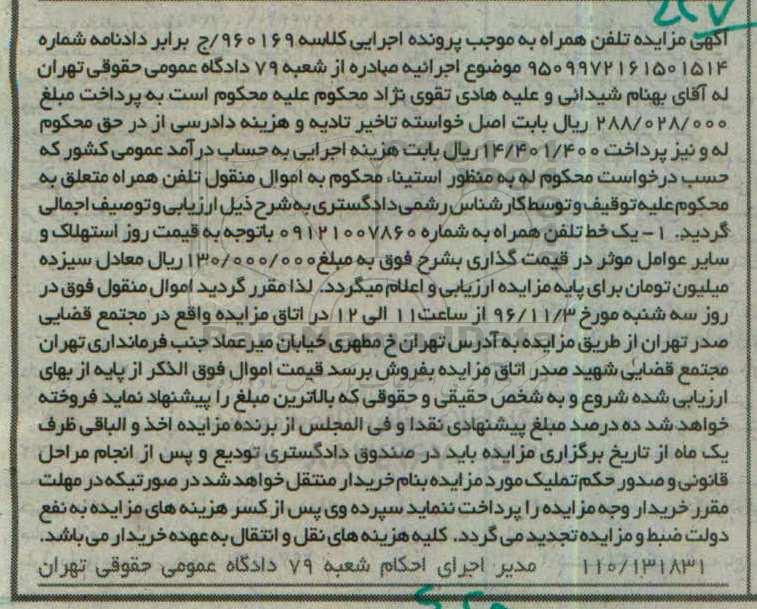 ۲۷
آگهی مزایده تلفن همراه به موجب پرونده اجرایی کلاسه ۹۶۰۱۶۹/ج برابر دادنامه شماره
۹۵۰۹۹۷۲۱۶۱۵۰۱۵۱۴ موضوع اجرائیه صادره از شعبه ۷۹ دادگاه عمومی حقوقی تهران
له آقای بهنام شیدائی و علیه هادی تقوی نژاد محکوم علیه محکوم است به پرداخت مبلغ
۲۸۸/۰۲۸/۰۰۰ ریال بابت اصل خواسته تاخیر تادیه و هزینه دادرسی از در حق محکوم
له و نیز پرداخت ۱۴/۴۰۱/۴۰۰ ریال بابت هزینه اجرایی به حساب درآمد عمومی کشور که
حسب درخواست محکوم له به منظور استیناء محکوم به اموال منقول تلفن همراه متعلق به
محکوم علیه توقیف و توسط کارشناس رشمی دادگستری به شرح ذیل ارزیابی و توصیف اجمالی
گردید. ۱- یک خط تلفن همراه به شماره ۰۹۱۲۱۰۰۷۸۶۰ باتوجه به قیمت روز استهلاک و
سایر عوامل موثر در قیمت گذاری بشرح فوق به مبلغ ۱۳۰/۰۰۰/۰۰۰ ریال معادل سیزده
میلیون تومان برای پایه مزایده ارزیابی و اعلام میگردد. لذا مقرر گردید اموال منقول فوق در
روز سه شنبه مورخ ۹۶/۱۱/۳ از ساعت ۱۱ الی ۱۲ در اتاق مزایده واقع در مجتمع قضایی
صدر تهران از طریق مزایده به آدرس تهران خ مطهری خیابان میرعماد جنب فرمانداری تهران
مجتمع قضایی شهید صدر اتاق مزایده بفروش برسد قیمت اموال فوق الذکر از پایه از بهای
ارزیابی شده شروع و به شخص حقیقی و حقوقی که بالاترین مبلغ را پیشنهاد نماید فروخته
خواهد شد ده درصد مبلغ پیشنهادی نقدا و فی المجلس از برنده مزایده اخذ و الباقی ظرف
یک ماه از تاریخ برگزاری مزایده باید در صندوق دادگستری تودیع و پس از انجام مراحل
قانونی و صدور حکم تملیک مورد مزایده بنام خریدار منتقل خواهد شد در صورتیکه در مهلت
مقرر خریدار وجه مزایده را پرداخت ننماید سپرده وی پس از کسر هزینه های مزایده به نفع
دولت ضبط و مزایده تجدید می گردد. کلیه هزینه های نقل و انتقال به عهده خریدار می باشد.
۱۱۰/۱۳۱۸۳۱ مدیر اجرای احکام شعبه ۷۹ دادگاه عمومی حقوقی تهران